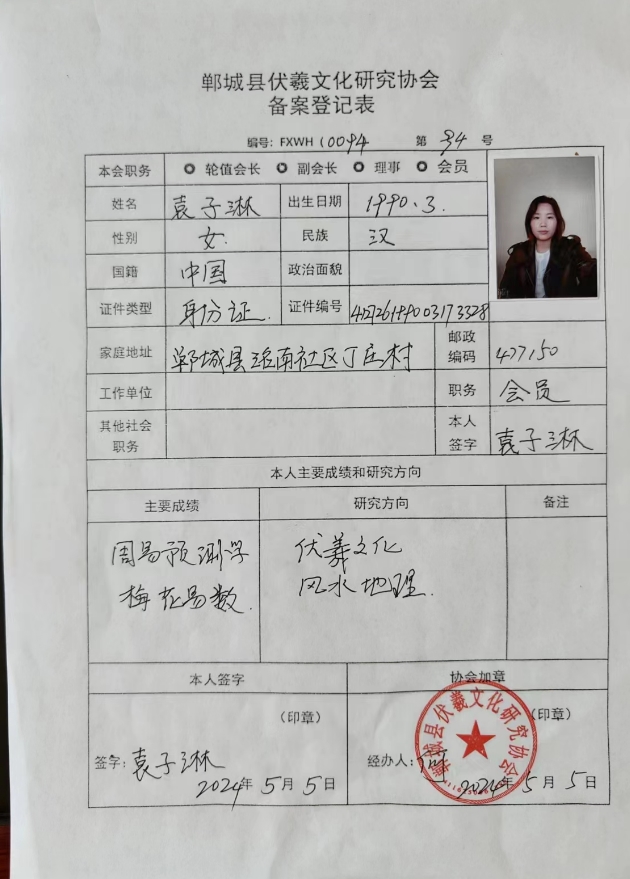 郸城县伏羲文化研究协会
备案登记表
编号: FXWH (0094 第 94 号
本会职务 轮值会长 副会长 理事 会员
姓名 袁子淋 出生日期 1990.3.
性别 女. 民族 汉
国籍 中国 政治面貌
证件类型 身份证. 证件编号
家庭地址 郸城县 南社区丁庄村 邮政编码 477150
工作单位 职务 会员
其他社会职务 本人签字 袁子淋
本人主要成绩和研究方向
主要成绩 研究方向 备注
周易预测学 伏羲文化
梅花易数. 风水地理.
本人签字 协会加章
(印章) (印章)
签字: 袁子淋 经办人:
2024年5月5日 2024年5月5日
郸城县伏羲文化研究协会